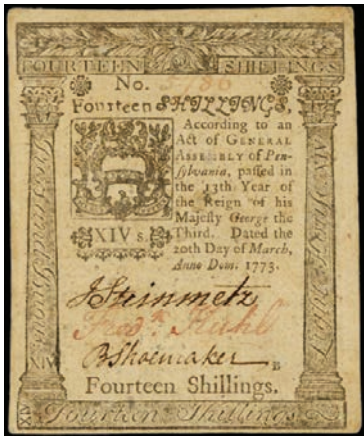 FOURTEEN SHILLINGS
No.
Fourteen SHILLINGS,
According to an
Act of GENERAL
ASSEMBLY of Pen-
ſylvania, paſſed in
the 13th Year of
the Reign of his
Majeſty George the
Third. Dated the
20th Day of March,
Anno Dom. 1773.
XIV s.
J Steinmetz
Fredk. Kuhl
B Shoemaker
B
Fourteen Shillings.
XIV
Fourteen Shillings